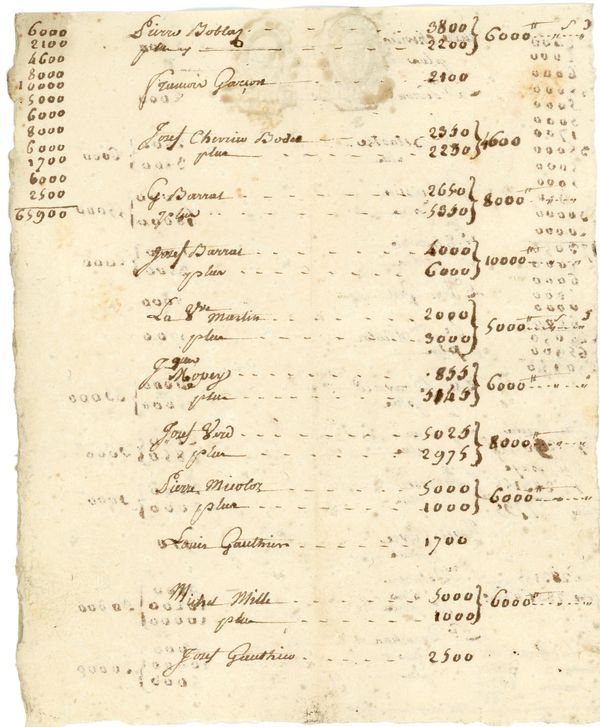 6000
2100
4600
8000
10000
5000
6000
8000
6000
1700
6000
2500
65900
Pierre 3800 } 6000 "
plus 2200
François Garçon 2100
Josef Cherrico 2350 } 4600
plus 2250
G. Barrat 2650 } 8000 "
plus 5350
Josef Barrat 4000 } 10000 "
plus 6000
La Vve Martin 2000 } 5000 "
plus 3000
855 } 6000 "
plus 5145
Josef Verd 5025 } 8000 "
plus 2975
Pierre Micolor 5000 } 6000 "
plus 1000
Louis Gauthier 1700
Michel Mille 5000 } 6000 "
plus 1000
Josef Gauthier 2500